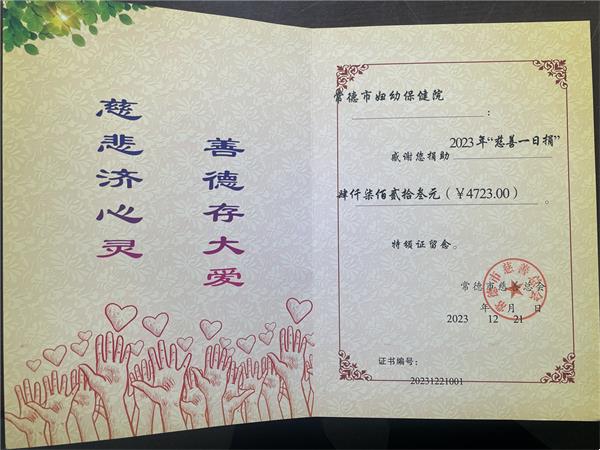 慈悲济心灵
善德存大爱
常德市妇幼保健院
:
2023年“慈善一日捐”
感谢您捐助
肆仟柒佰贰拾叁元(￥4723.00)。
特颁证留念。
常德市慈善总会
年 月 日
2023 12 21
证书编号:
20231221001
常德市慈善总会